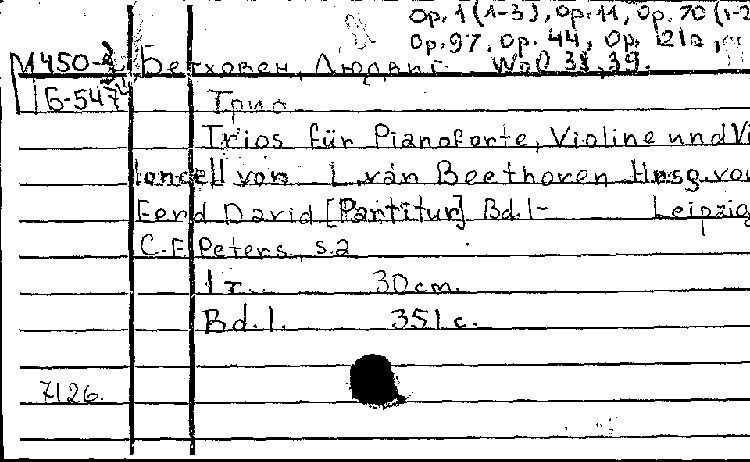 Op. 1 (1-3), Op. 11, Op. 70 (1-2
Op. 97, Op. 44, Op. 121a,
М450-3 Бетховен, Людвиг WoO 38, 39.
Б-547 Трио
Trios für Pianoforte, Violine und Vi
loncell von L. van Beethoven Hrsg. von
Ferd David [Partitur] Bd. 1- Leipzig
C. F. Peters, s.a
1 т. 30 cm.
Bd. 1. 351 c.
7126.